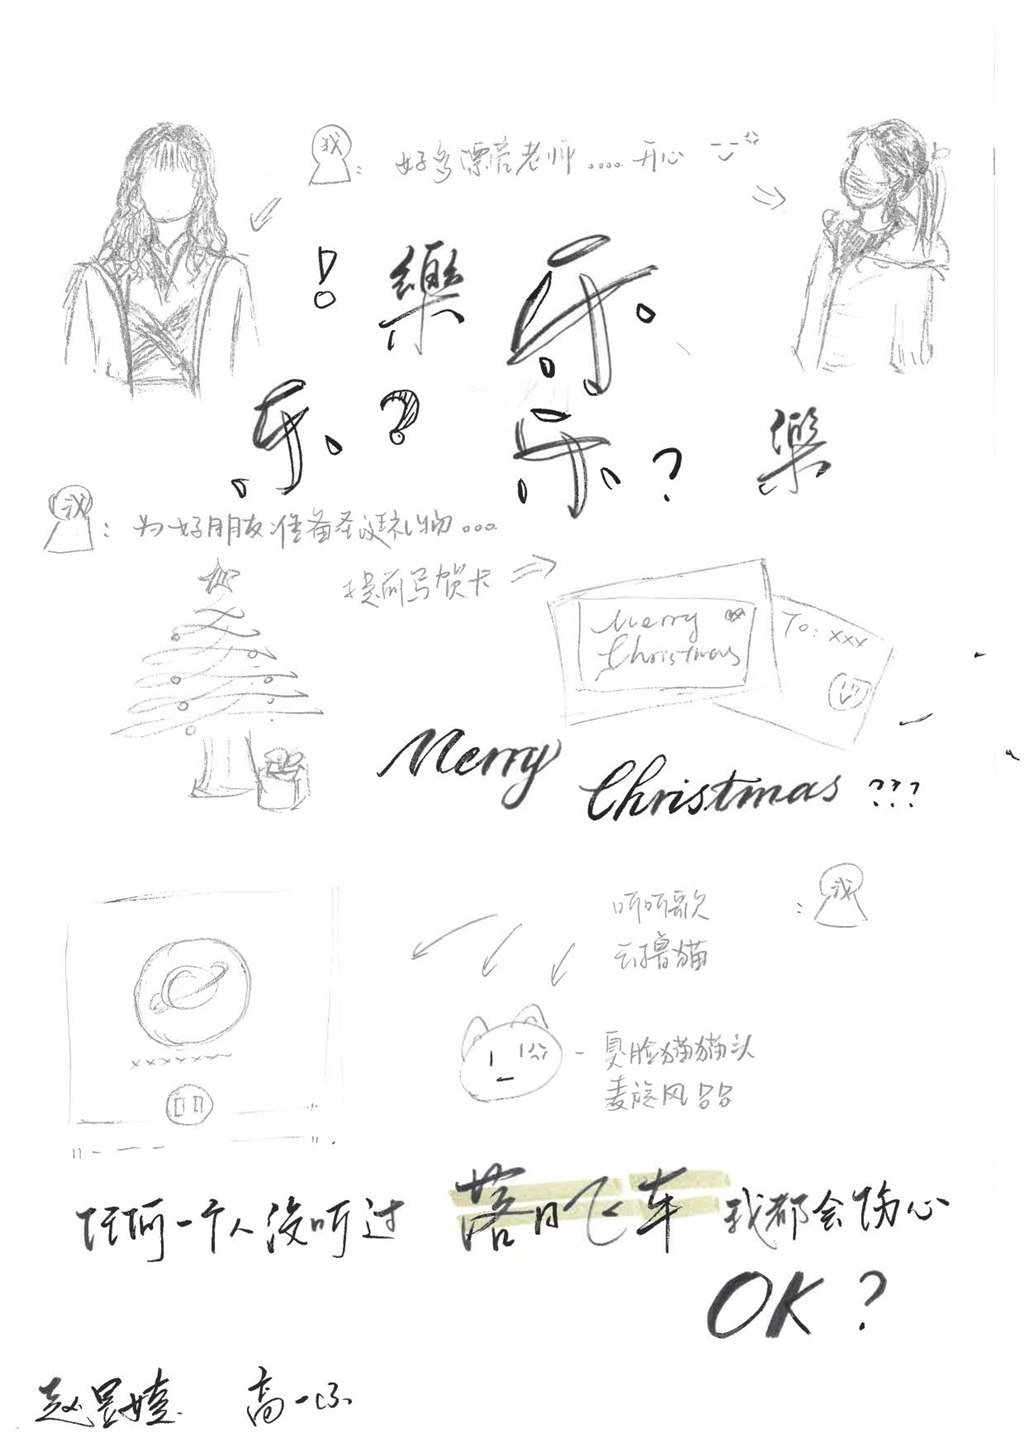 我：好多漂亮老师....开心
！樂 乐
乐？ 乐？ 樂
我：为好朋友准备圣诞礼物...
提前写贺卡
Merry
Christmas
To: xxx
Merry
Christmas ???
听听歌 ：我
云撸猫
xxxxxx~
- 臭脸猫猫头
麦旋风呂呂
任何一个人没听过 落日飞车 我都会伤心
OK？
高一